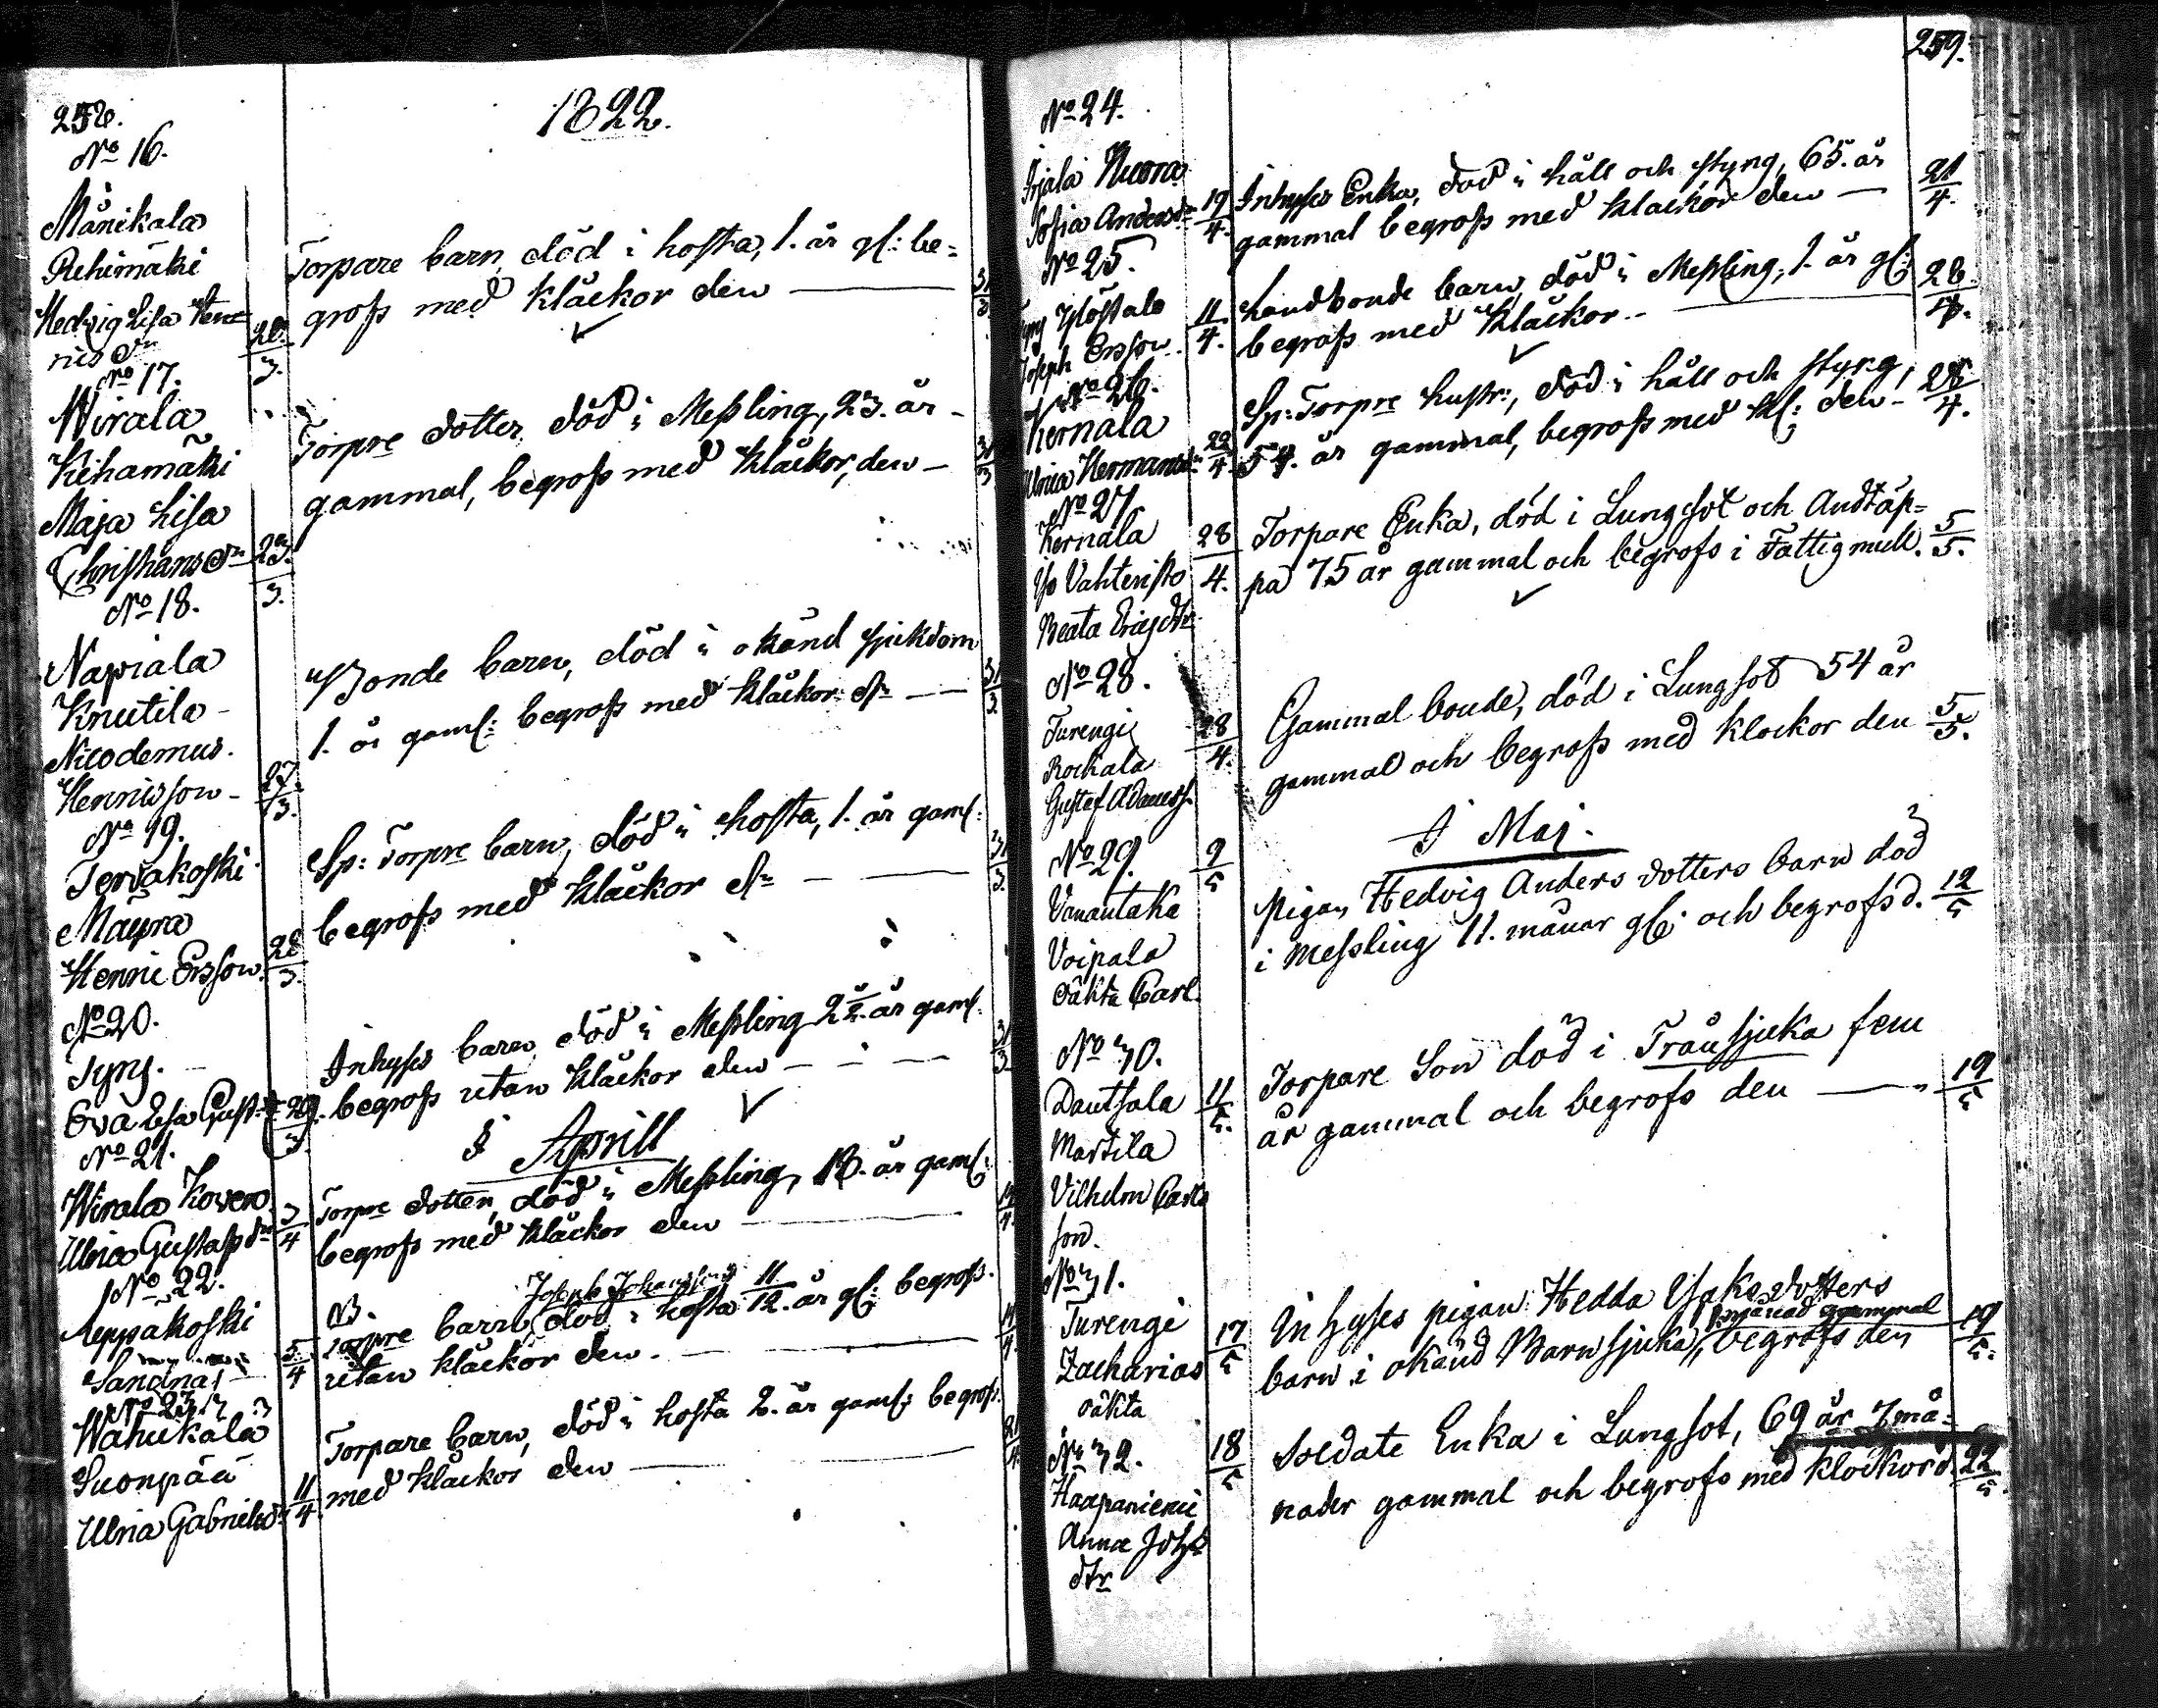 258.
1822.
No 16.
Månikala
Riehimäki
Hedvig Lisa Hen=
rics dr
20/3.
Torpare barn, död i hosta, 1. år gl: be=
grofs med kläckor den — 31/3
No 17.
Wirala
Kihamäki
Maja Lisa
Christians dr
23./3.
Torpre dotter, död i Messling, 23. år
gammal, begrofs med kläckor, den — 31/3
No 18.
Napiala
Knutila
Nicodemus
Henricsson
27./3.
Bonde barn, död i okänd sjukdom
1. år gaml: begrofs med kläckor dn — 31/3
No 19.
Tervakoski
Mäyrä
Henric Ersson
28/3.
Sp: Torpre barn, död i hosta, 1. år gaml:
begrofs med kläckor dn — 31/3.
No 20.
Syrj.
Eva Lisa Gust. dr
29./3
Inhyses barn, död i Messling 2½ år gaml.
begrofs utan kläckor den — 31/3.
I Aprill
No 21.
Wirala Kovero
Ulrica Gustafs dr
3/4
Torpre dotter, död i Messling, 18. år gaml:
begrofs med kläckor den —
No 22.
Leppäkoski
5./4
Joseph Johansson
Torpre barn, död i hosta 11/12. år gl: begrofs.
utan kläckor den. —
No 23.
Wähikälä
Suonpää
Ulrica Gabrielsdr
11/4
Torpare barn, död i hosta 2. år gaml: begrofs.
med kläckor den — 21/4
259.
No 24.
Irjala Nuora
Sofia Andersdr
19/4.
Inhyses Enka, död i håll och styng, 65. år
gammal begrofs med kläckor den — 21/4.
No 25.
Syrj Ylöstalo
Joseph Ersson
11/4.
Landbonde barn, död i Messling, 1. år gl:
begrofs med kläckor. — 28./4.
No 26.
Kernala
Ulrica Hermansdr
22/4
Sp: Torpre hustr:, död i håll och styng,
54. år gammal, begrofs med kl: den — 28/4.
No 27
Kernala
Iso Vahteristo
Beata Ericsdtr
28/4.
Torpare Enka, död i Lungsot och Andtäp=
pa 75 år gammal och begrofs i Fattigmull. 5/5.
No 28.
Turengi
Rockala
Gustef Adamss.
28/4.
Gammal bonde, död i Lungsot 54 år
gammal och begrofs med klockor den 5/5.
I Maj.
No 29.
Vanantaka
Voipala
oäkta Carl.
9/5
Pigan Hedvig Anders dotters barn död
i Messling 11. månar gl: och begrofs d. 12/5
No 30.
Dantsala
Martila
Vilhelm Carls
son.
11/5.
Torpare Son död i Trånsjuka fem
år gammal och begrofs den — 19/5
No 31.
Turengi
Zacharias
oäkta
17/5
Inhyses pigan Hedda Isaks dotters
månad gammal
barn i okänd Barnsjuka, begrofs den 19/5.
No 32.
Haapaniemi
Anna Joh
dtr
18/5
Soldate Enka i Lungsot, 69 år 7 må=
nader gammal och begrofs med klockor d. 22/5.